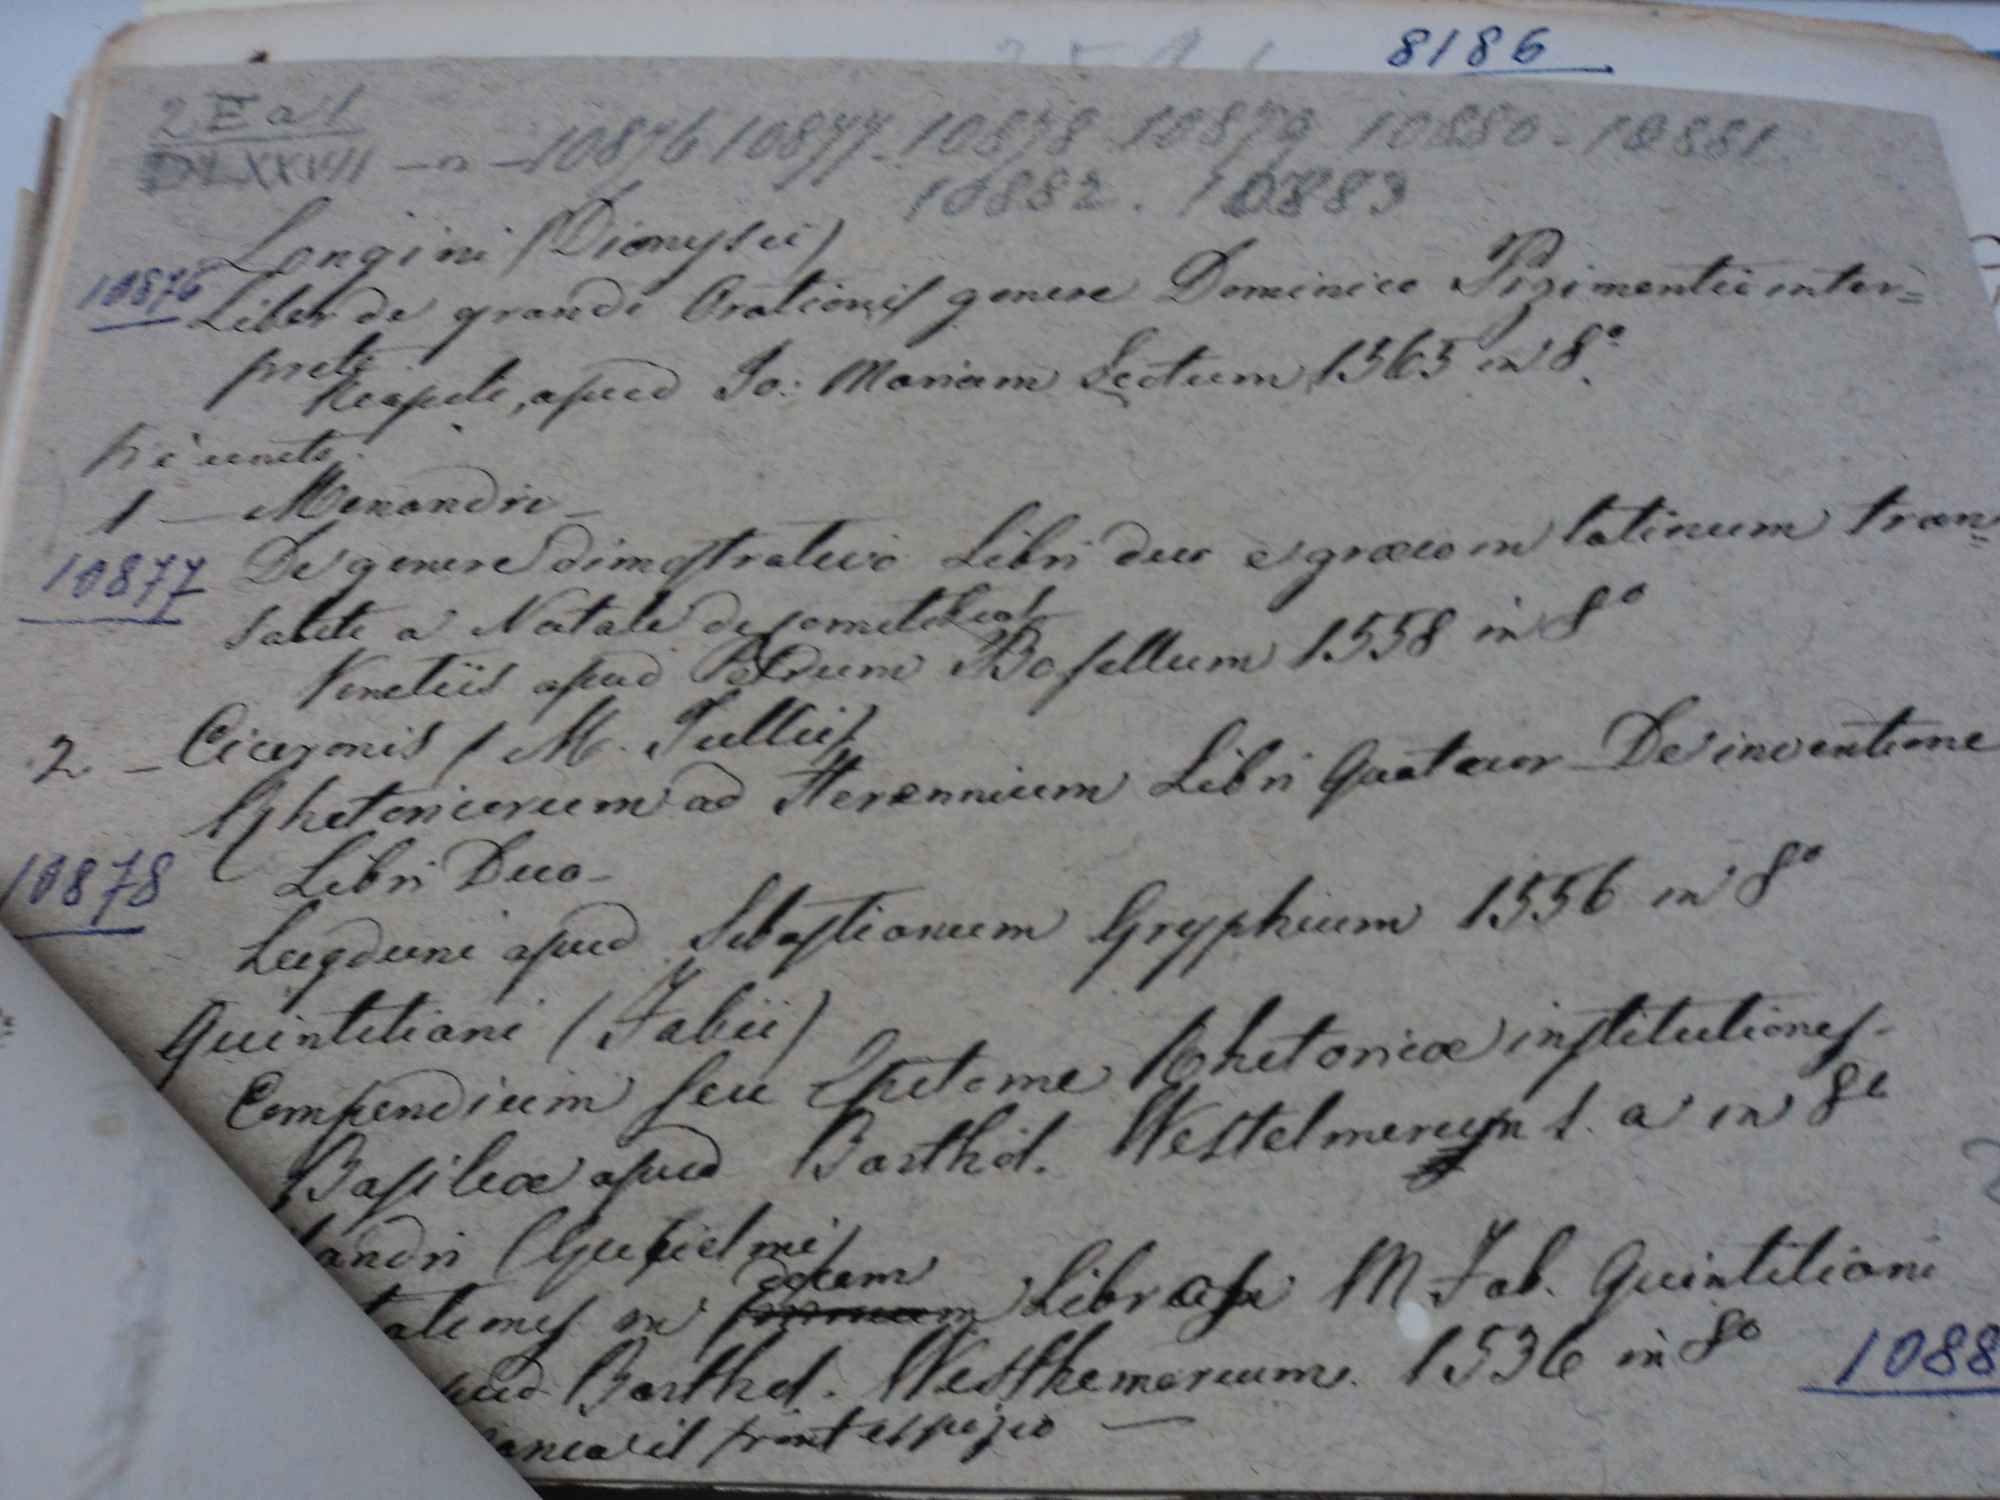 8186
2 E a 1
DLXXVII - n - 10876 10877 - 10878 10879 10880 - 10881
10882 . 10883
Longini (Dionysii)
10876 Liber de grandi Orationis genere Dominico Pizimentii inter=
prete
Neapoli, apud Io: Mariam Scotum 1565 in 8.º
hi è unito.
1 - Menandri -
10877 De genere dimostrativo Libri duo e græco in latinum tran=
salate a Natale de comitibus
Venetiis apud Petrum Bosellum 1558 in 8º
2. - Ciceronis (M. Tullii)
Rhetoricorum ad Herennium Libri Quatuor - De inventione
10878 Libri Duo -
Lugduni apud Sebastianum Gryphium 1556 in 8º
Quintiliani (Fabii)
Compendium seu Epitome Rhetoricæ institutiones -
Basileæ apud Barthol. Westelmerum s. a in 8º
andri (Gulielmi)
decem
in Libr M Fab. Quintiliani
Barthol. Westhemerium. 1536 in 8º 1088
il frontespizio -